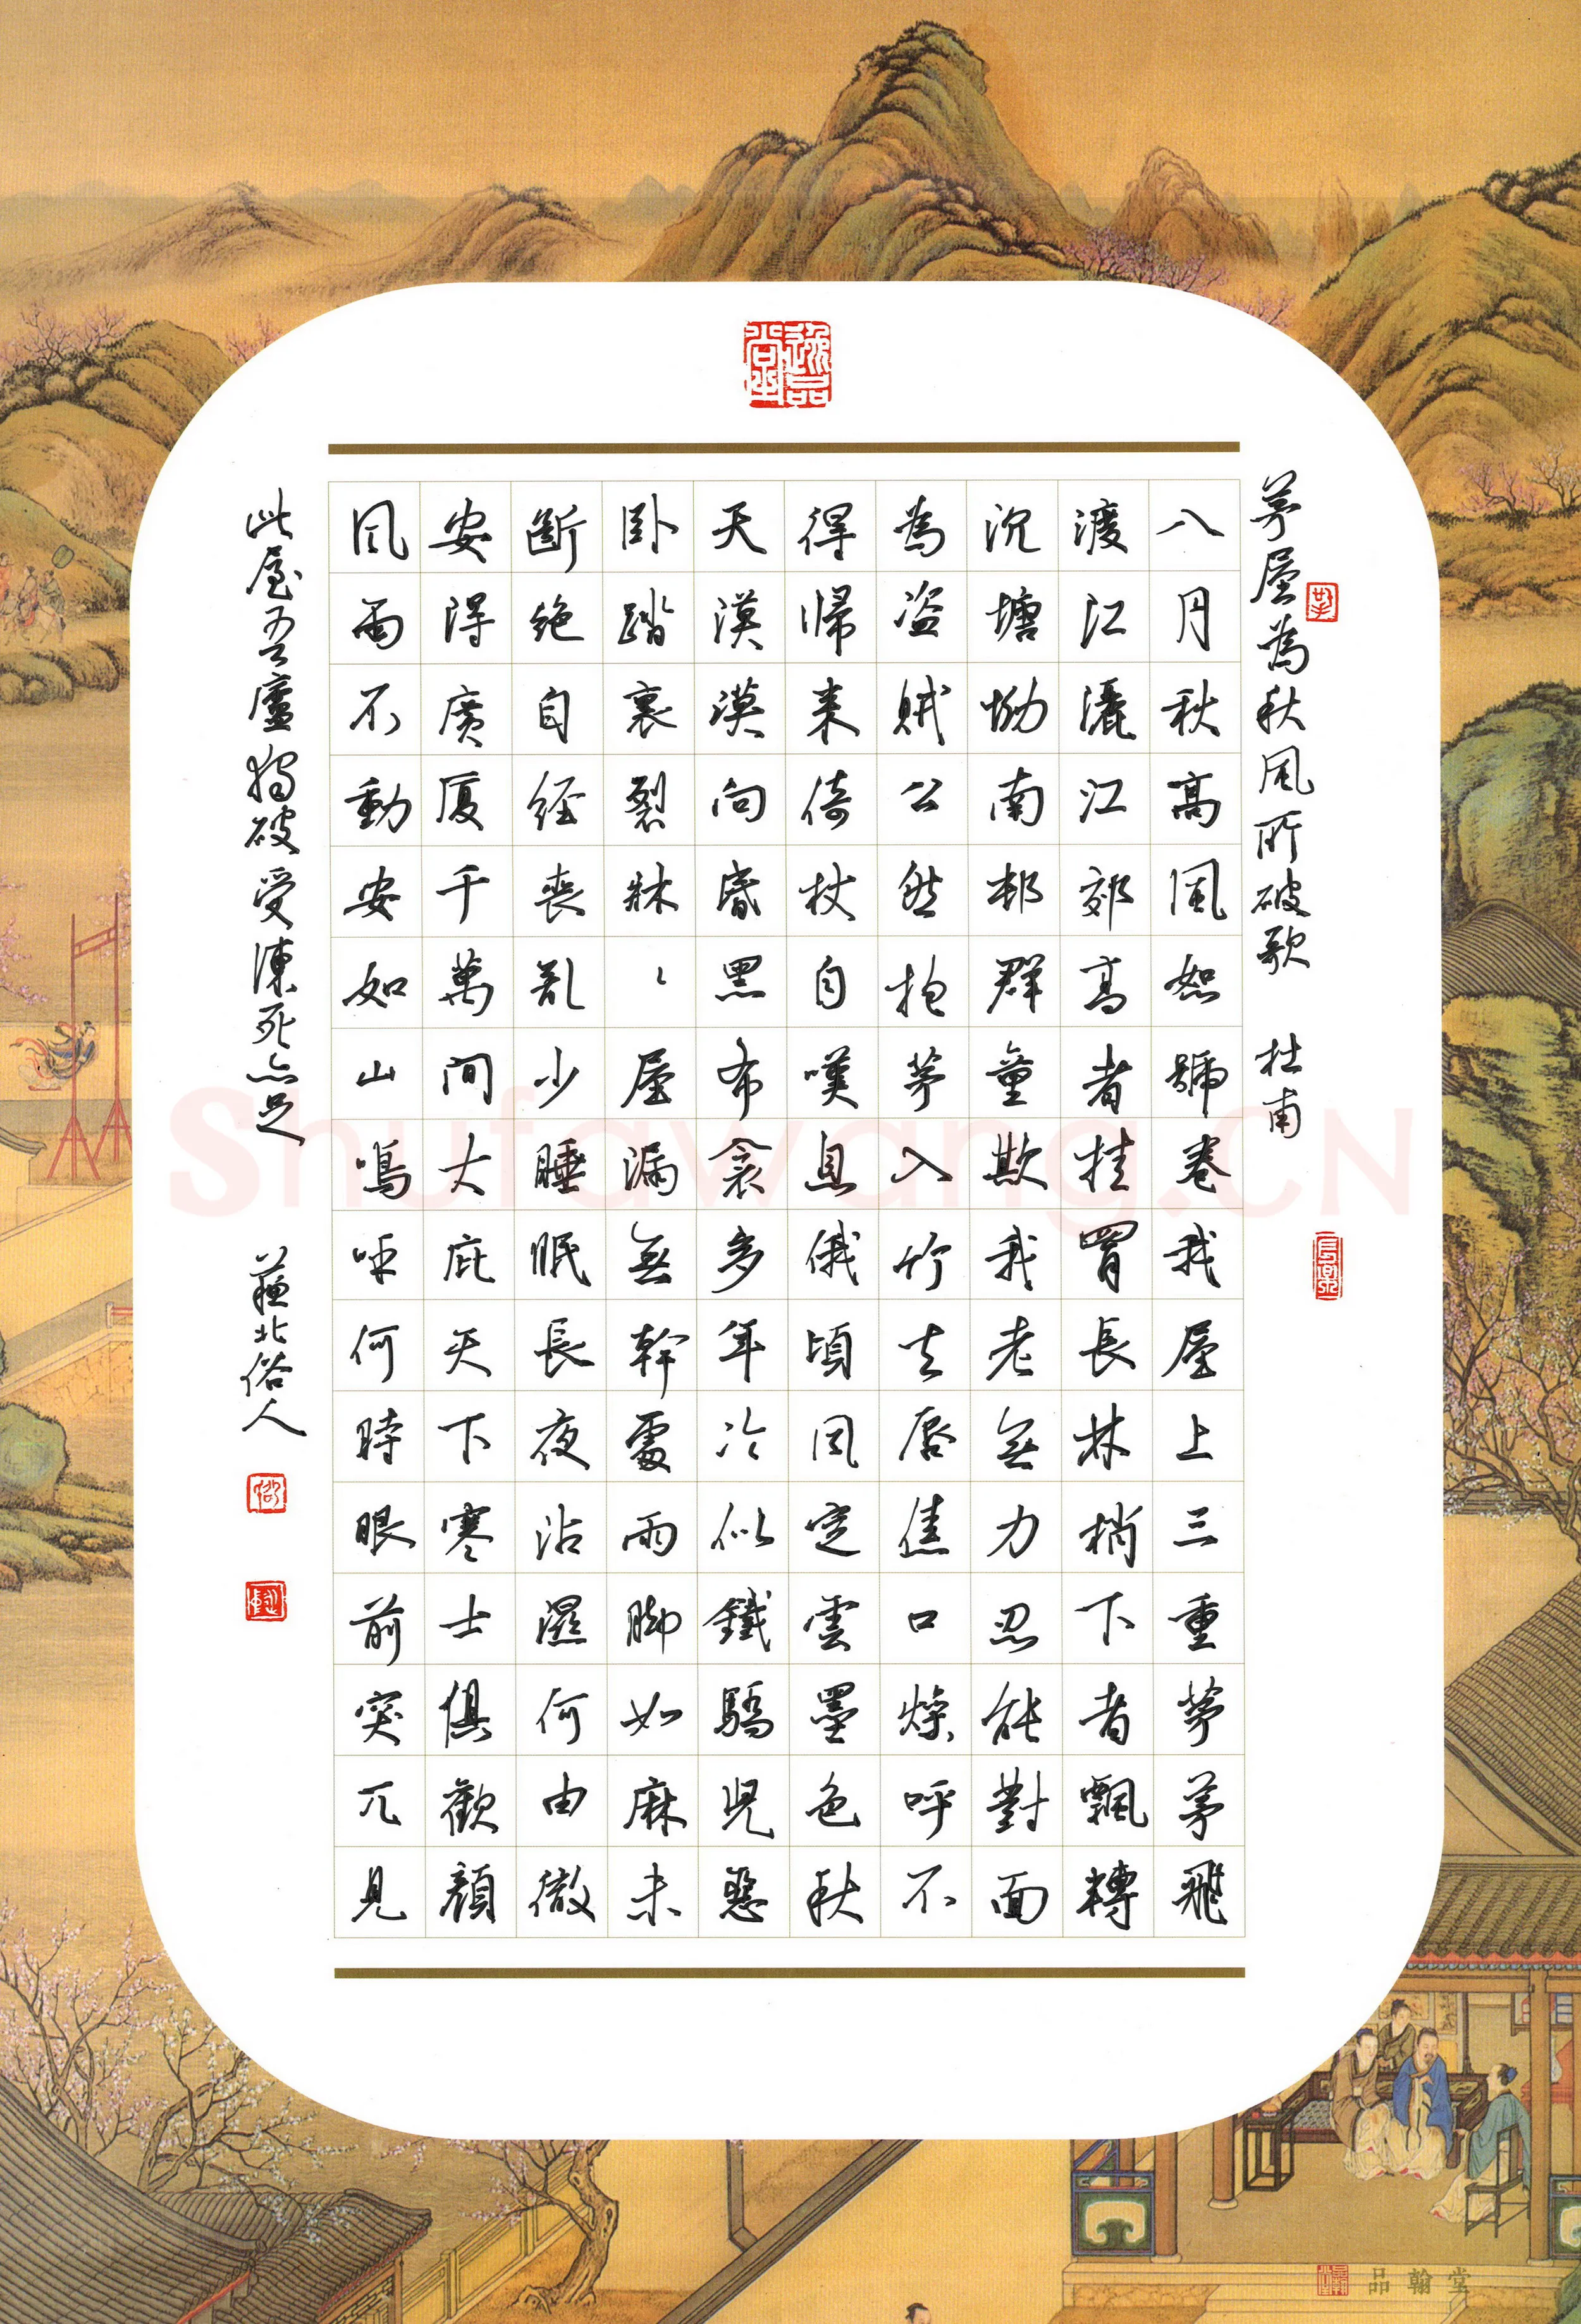 茅屋為秋風所破歌 杜甫
八月秋高風怒號卷我屋上三重茅茅飛
渡江灑江郊高者挂罥長林梢下者飄轉
沉塘坳南邨群童欺我老無力忍能對面
為盗賊公然抱茅入竹去唇焦口燥呼不
得歸来倚杖自嘆息俄頃風定雲墨色秋
天漠漠向昏黑布衾多年冷似鐵驕児惡
卧踏裏裂牀〻屋漏無幹處雨脚如麻未
斷绝自经喪亂少睡眠長夜沾濕何由徹
安得廣厦千萬間大庇天下寒士俱歡顔
風雨不動安如山嗚呼何時眼前突兀見
此屋吾廬獨破受凍死亦足 蘇北俗人
逸品堂
Shufawang.CN
品翰堂